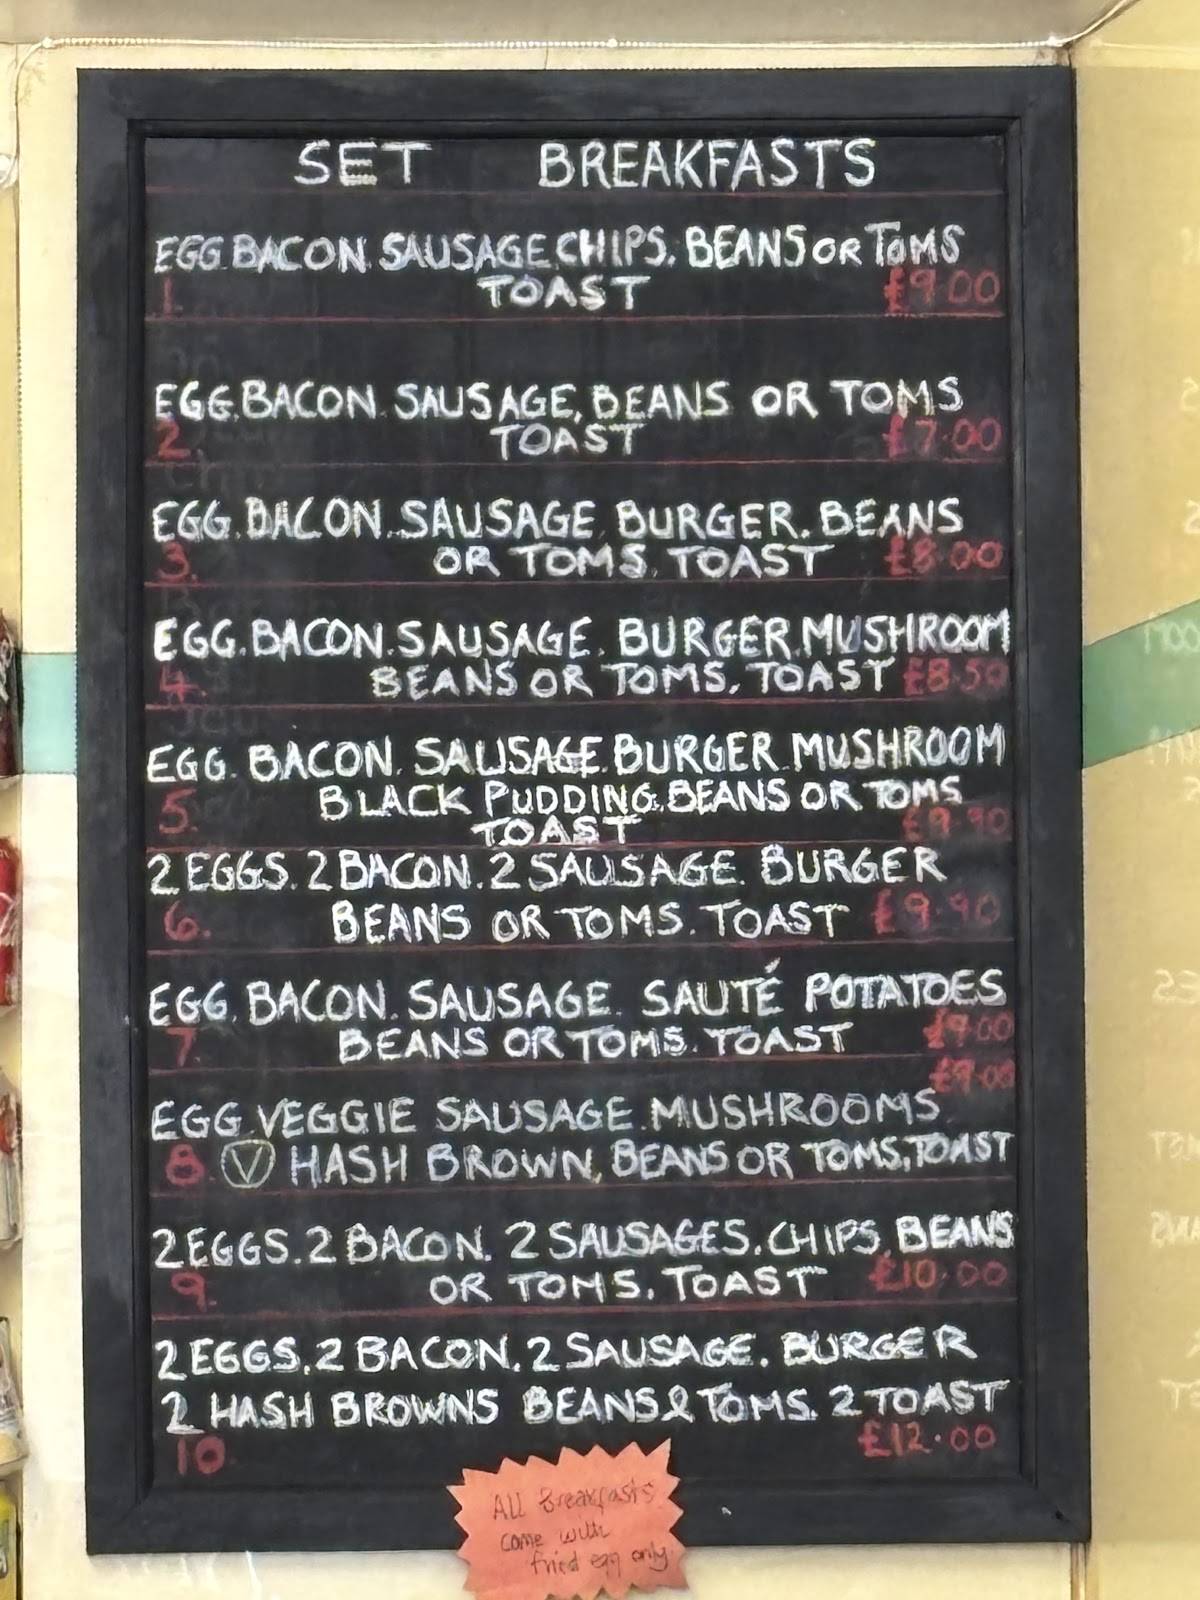 SET BREAKFASTS
EGG BACON SAUSAGE CHIPS. BEANS OR TOMS
1. TOAST £9.00
EGG. BACON. SAUSAGE, BEANS OR TOMS
2. TOAST £7.00
EGG. BACON. SAUSAGE. BURGER. BEANS
3. OR TOMS. TOAST £8.00
EGG. BACON. SAUSAGE. BURGER. MUSHROOM
4. BEANS OR TOMS. TOAST £8.50
EGG. BACON. SAUSAGE. BURGER MUSHROOM
5. BLACK PUDDING. BEANS OR TOMS
TOAST £9.90
2 EGGS. 2 BACON. 2 SAUSAGE. BURGER
6. BEANS OR TOMS. TOAST £9.90
EGG. BACON. SAUSAGE. SAUTÉ POTATOES
7. BEANS OR TOMS. TOAST £9.00
£9.00
EGG VEGGIE SAUSAGE. MUSHROOMS
8. V HASH BROWN, BEANS OR TOMS, TOAST
2 EGGS. 2 BACON. 2 SAUSAGES. CHIPS. BEANS
9. OR TOMS. TOAST £10.00
2 EGGS. 2 BACON. 2 SAUSAGE. BURGER
2 HASH BROWNS BEANS & TOMS. 2 TOAST
10 £12.00
ALL Breakfasts
come with
fried egg only